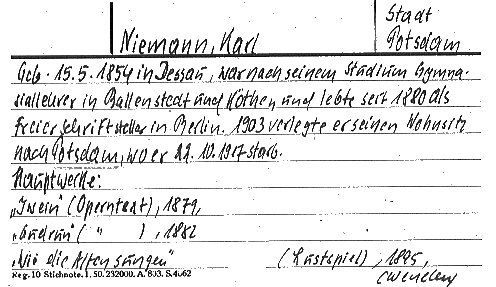 Stadt
Niemann, Karl Potsdam
Geb. 15.5.1854 in Dessau, war nach seinem Studium Gymna-
siallehrer in Ballenstedt und Köthen und lebte seit 1880 als
freier Schriftsteller in Berlin. 1903 verlegte er seinen Wohnsitz
nach Potsdam, wo er 22.10.1917 starb.
Hauptwerke:
„Iwein" (Operntext), 1879,
„Gudrun" ( " ), 1882
„Wie die Alten sungen" (Lustspiel), 1895,
Reg. 10 Stichnote. I. 50. 232000. A. 803. S. 4062